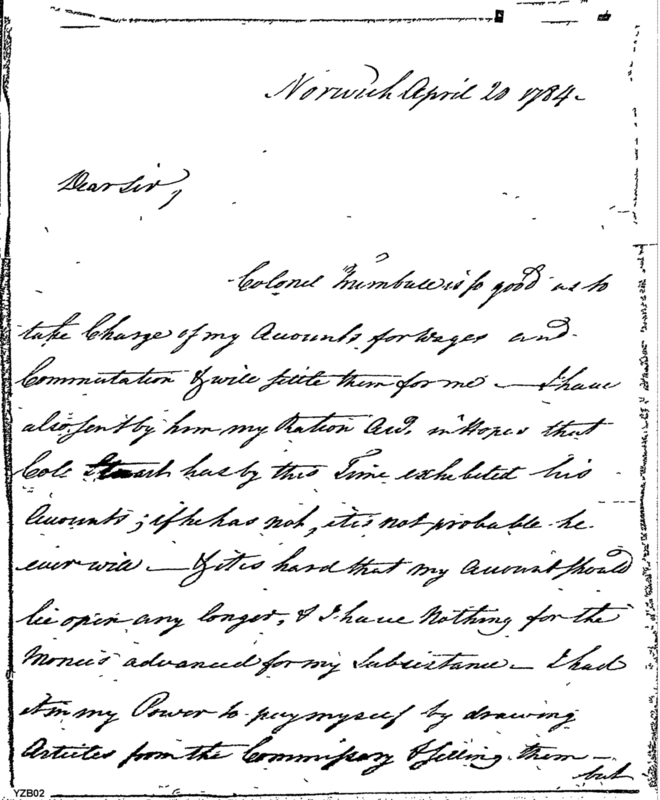 Norwich April 20 1784.
Dear Sir,
Colonel Trumbull is so good as to
take Charge of my Accounts for Wages and
Commutation & will settle them for me — I have
also sent by him my Ration Acct. in Hopes that
Colo Stuart has by this Time exhibited his
Accounts; if he has not, it is not probable he
ever will — & it is hard that my Account should
lie open any longer, & I have Nothing for the
Monies advanced for my Subsistance — I had
it in my Power to pay myself by drawing
Articles from the Commissary & selling them —
but
YZB02